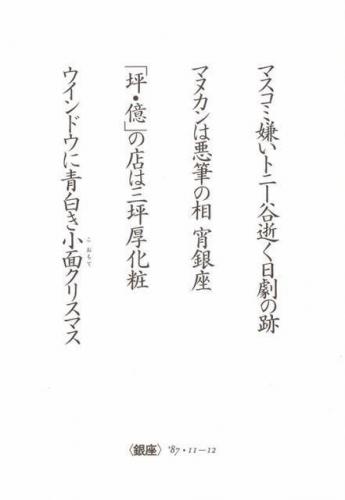 マスコミ嫌いトニー谷逝く日劇の跡
マヌカンは悪筆の相 宵銀座
「坪・億」の店は三坪厚化粧
ウインドウに青白き小面クリスマス
こおもて
〈銀座〉 '87・11—12